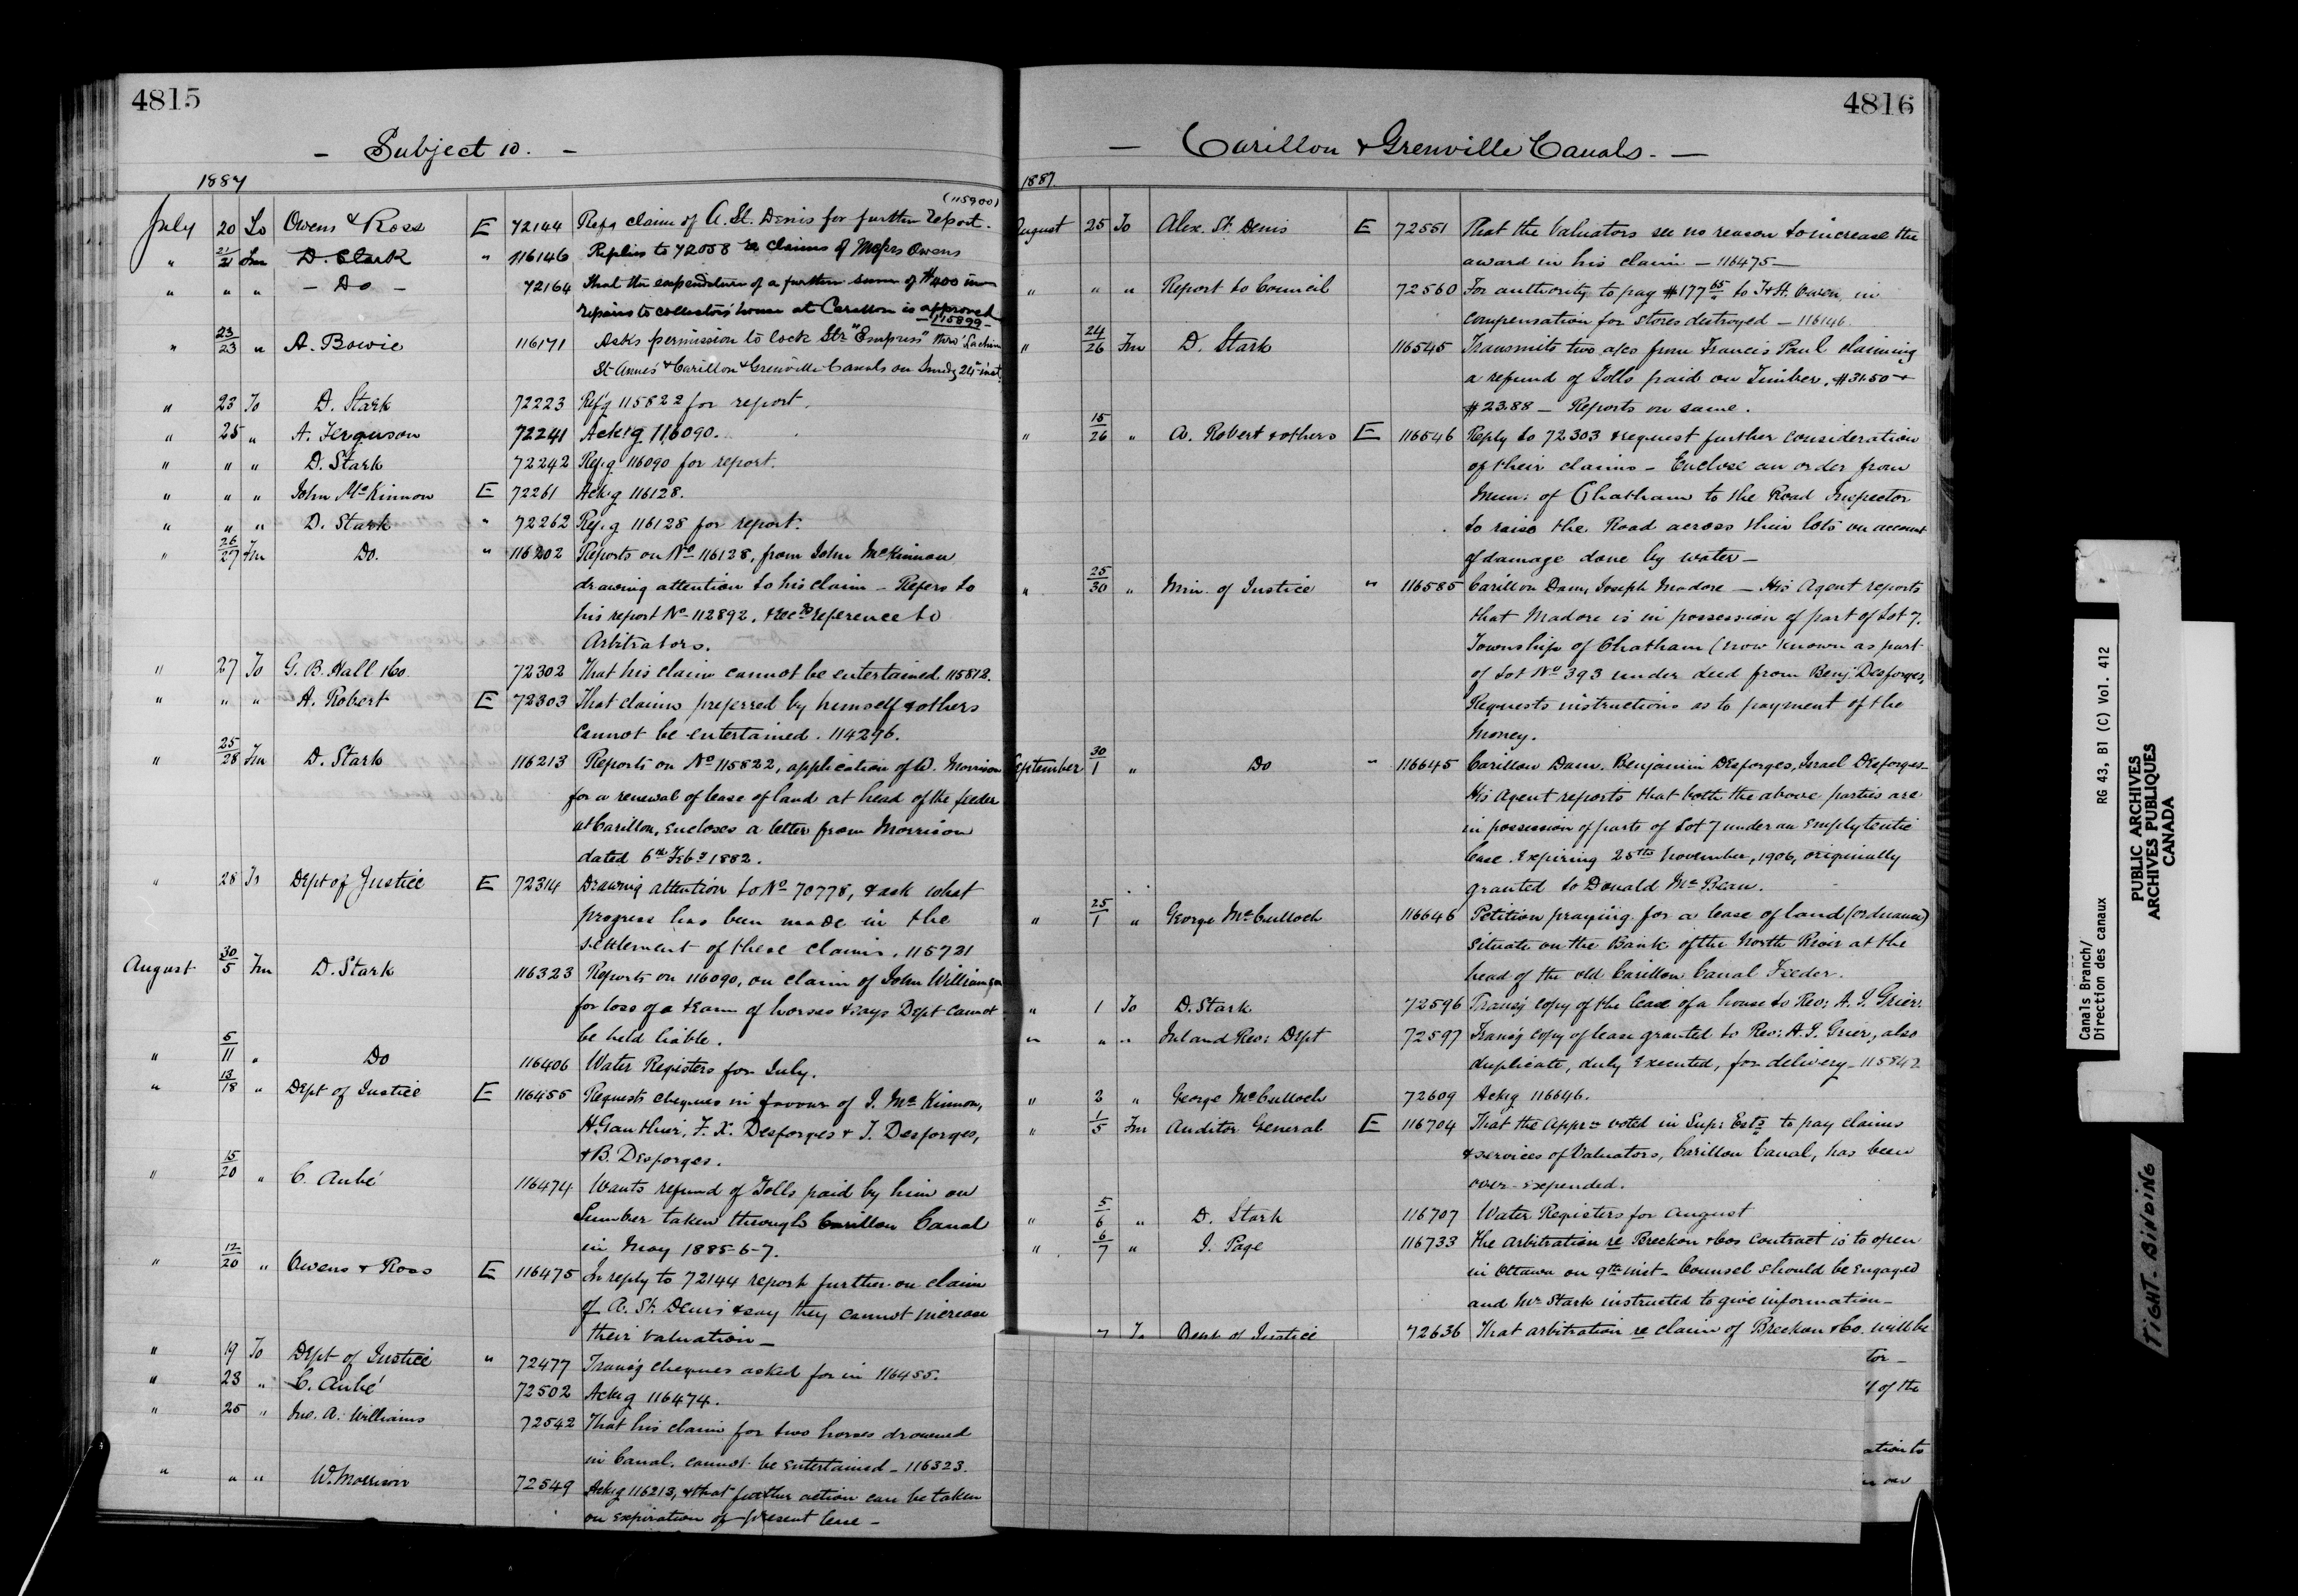 4815
- Subject 10. -
1887
(115900)
July 20 To Owens & Ross E 72144 Ref'g claim of A. St. Denis for further report.
" 21/21 Fm D. Stark " 116146 Replies to 72058 re claims of Messrs Owens
" " " - Do - 72164 That the expenditure of a further sum of $400 in
repairs to collectors' house at Carillon is approved
- 115899 -
" 23/23 " A. Bowie 116171 Asks permission to lock Str "Empress" thro' Lachine
St Annes & Carillon & Grenville Canals on Sunday 24th inst.
" 23 To D. Stark 72223 Ref'g 115822 for report.
" 25 " A. Ferguson 72241 Ack'g 116090.
" " " D. Stark 72242 Ref.g 116090 for report.
" " " John McKinnon E 72261 Ack.g 116128.
" " " D. Stark " 72262 Ref.g 116128 for report.
" 26/27 Fm Do. " 116202 Reports on No 116128, from John McKinnon
drawing attention to his claim - Refers to
his report No 112892, & recds reference to
Arbitrators.
" 27 To G. B. Hall & Co. 72302 That his claim cannot be entertained 115812.
" " " A. Robert E 72303 That claims preferred by himself & others
cannot be entertained. 114296.
" 25/28 Fm D. Stark 116213 Reports on No 115822, application of W. Morrison
for a renewal of lease of land at head of the feeder
at Carillon, encloses a letter from Morrison
dated 6th Feby 1882.
" 28 To Dept of Justice E 72314 Drawing attention to No 70778, & ask what
progress has been made in the
settlement of these claims. 115721
August 30/5 Fm D. Stark 116323 Reports on 116090, on claim of John Williamson
for loss of a team of horses & says Dept cannot
be held liable.
" 5/11 " Do 116406 Water Registers for July.
" 13/18 " Dept of Justice E 116455 Requests cheques in favour of J. McKinnon,
H. Gauthier, F. X. Desforges & I. Desforges,
& B. Desforges.
" 15/20 " C. Aubé 116474 Wants refund of Tolls paid by him on
Lumber taken through Carillon Canal
in May 1885-6-7.
" 12/20 " Owens & Ross E 116475 In reply to 72144 report further on claim
of A. St. Denis & say they cannot increase
their valuation -
" 19 To Dept of Justice " 72477 Trans'g cheques asked for in 116455.
" 23 " C. Aubé 72502 Ack.g 116474.
" 25 " Jno. A. Williams 72542 That his claim for two horses drowned
in Canal, cannot be entertained - 116323.
" " " W. Morrison 72549 Ack.g 116213, & that further action can be taken
on expiration of present lease -
4816
- Carillon & Grenville Canals. -
1887.
August 25 To Alex. St. Denis E 72551 That the Valuators see no reason to increase the
award in his claim - 116475 -
" " " Report to Council 72560 For authority to pay $177 65 to T & H. Owen in
compensation for stores destroyed - 116146.
" 24/26 Fm D. Stark 116545 Transmits two a/cs from Francis Paul claiming
a refund of Tolls paid on Timber, $31.50 &
$23.88 - Reports on same.
" 15/26 " A. Robert & others E 116546 Reply to 72303 & request further consideration
of their claims - Enclose an order from
Mun: of Chatham to the Road Inspector
to raise the Road across their lots on account
of damage done by water -
" 25/30 " Min. of Justice " 116585 Carillon Dam, Joseph Madore - His Agent reports
that Madore is in possession of part of Lot 7,
Township of Chatham (now known as part
of Lot No 393 under deed from Benj. Desforges,
Requests instructions as to payment of the
money.
September 30/1 " Do " 116645 Carillon Dam. Benjamin Desforges, Israel Desforges -
His Agent reports that both the above parties are
in possession of parts of Lot 7 under an Emphyteutic
lease. Expiring 25th November, 1906, originally
granted to Donald McBean.
" 25/1 " George McCulloch 116646 Petition praying for a lease of land (ordnance)
situate on the Bank of the North River at the
head of the old Carillon Canal Feeder.
" 1 To D. Stark 72596 Trans'g copy of the lease of a house to Rev: A. J. Grier.
" " " Inland Rev: Dept 72597 Trans'g copy of lease granted to Rev: A. J. Grier, also
duplicate, duly executed, for delivery - 115842
" 2 " George McCulloch 72609 Ack.g 116646.
" 1/5 Fm Auditor General E 116704 That the Apprn voted in Supr Ests to pay claims
& services of Valuators, Carillon Canal, has been
over-expended.
" 5/6 " D. Stark 116707 Water Registers for August
" 6/7 " J. Page 116733 The arbitration re Breckon & Cos contract is to open
in Ottawa on 9th inst - Counsel should be engaged
and Mr Stark instructed to give information -
7 To Dept of Justice 72636 That arbitration re claim of Breckon & Co. will be
tor -
of the
ation to
Canals Branch/
Direction des canaux
RG 43, B1 (C) Vol. 412
PUBLIC ARCHIVES
ARCHIVES PUBLIQUES
CANADA
TIGHT BINDING